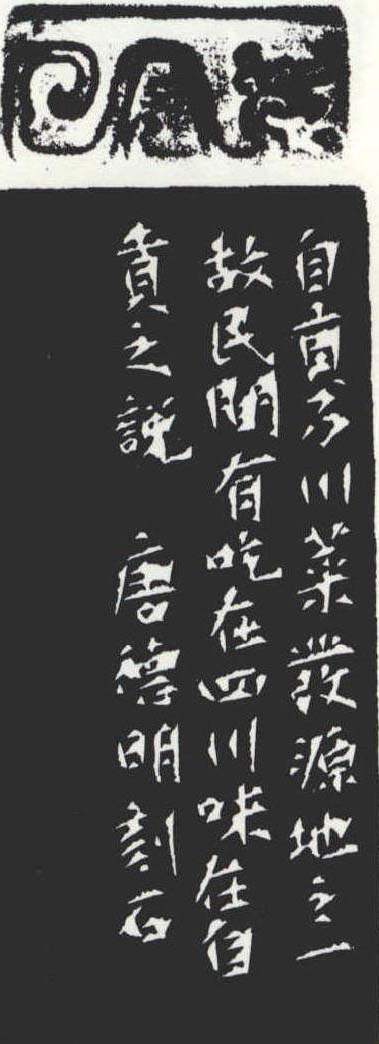 自贡为川菜發源地之一
故民間有吃在四川味在自
贡之說 唐德明刻石